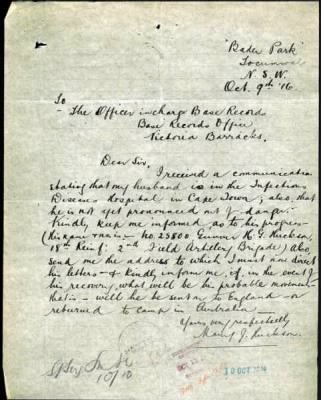 "Baden Park"
Tocumwal
N. S. W.
Oct. 9th '16.
To
- The Officer in charge Base Records
Base Records Office
Victoria Barracks.
Dear Sir,
I received a communication
stating that my husband is in the Infectious
Diseases Hospital in Cape Town; also, that
he is not yet pronounced out of danger.
Kindly keep me informed as to his progress
No. 25880 Gunner H. G.
18th Reinf: 2nd Field Artillery Brigade) Also,
send me the address to which I must now direct
his letters - & kindly inform me, if, in the event of
his recovery, what will be his probable movement
that is - will he be sent to England - or
returned to camp in Australia -
Yours very respectfully
Mary J.
10/10
10 OCT 1916